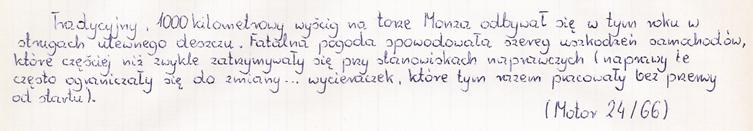 Tradycyjny, 1000 kilometrowy wyścig na torze Monza odbywał się w tym roku w
strugach ulewnego deszczu. Fatalna pogoda spowodowała szereg uszkodzeń samochodów,
które częściej niż zwykle zatrzymywały się przy stanowiskach naprawczych (naprawy te
często ograniczały się do zmiany... wycieraczek, które tym razem pracowały bez przerwy
od startu).
(Motor 24/66)